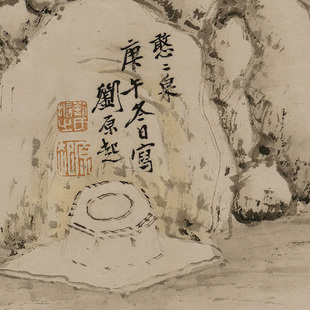 憨〻泉
庚午冬日寫
劉原起